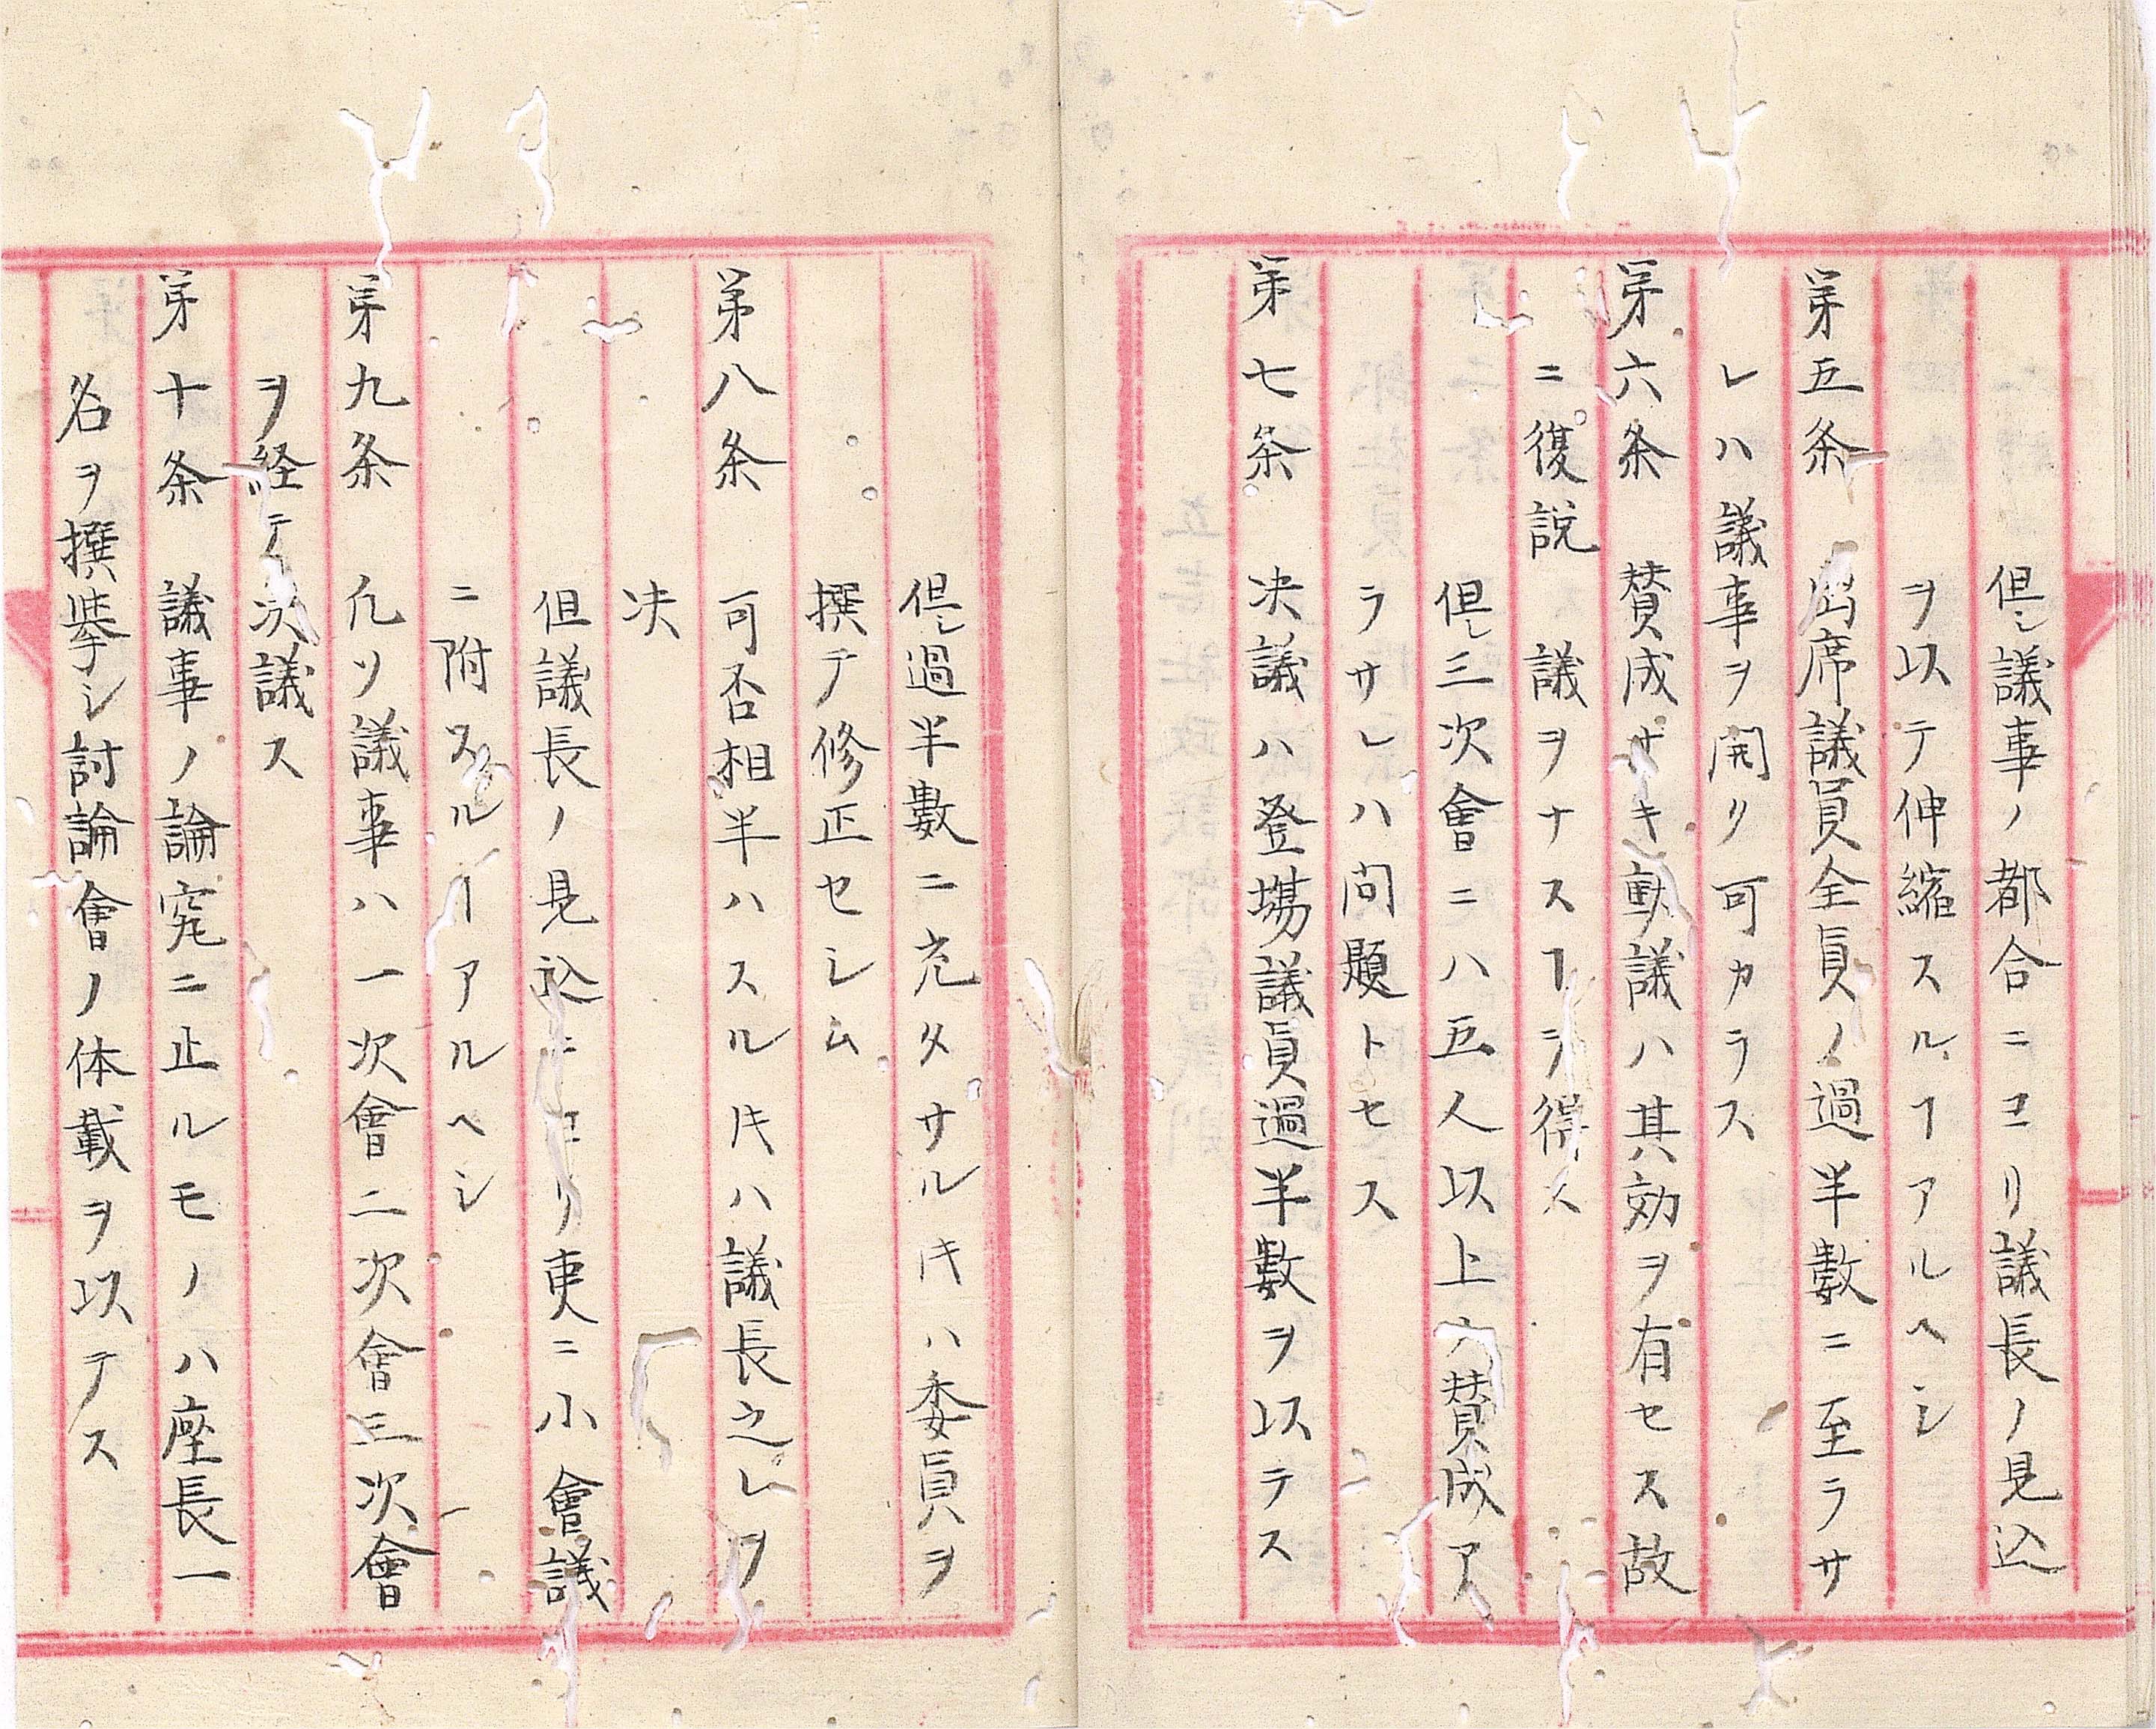 但シ議事ノ都合ニヨリ議長ノ見込
ヲ以テ伸縮スルヿアルヘシ
第五条　出席議員全員ノ過半數ニ至ラサ
レハ議事ヲ開ク可カラス
第六条　賛成ナキ動議ハ其効ヲ有セス故
ニ復説　議ヲナスヿヲ得ス
但シ三次會ニハ五人以上ノ賛成ア
ラサレハ問題トセス
第七条　决議ハ登場議員過半數ヲ以テス
但シ過半數ニ充タサルﾄｷハ委員ヲ
撰テ修正セシム
第八条　可否相半ハスルﾄｷハ議長之レヲ
决
但議長ノ見込ニヨリ更ニ小會議
ニ附スルヿアルヘシ
第九条　凢ソ議事ハ一次會二次會三次會
ヲ経テ决議ス
第十条　議事ノ論究ニ止ルモノハ座長一
名ヲ撰挙シ討論會ノ体載ヲ以テス